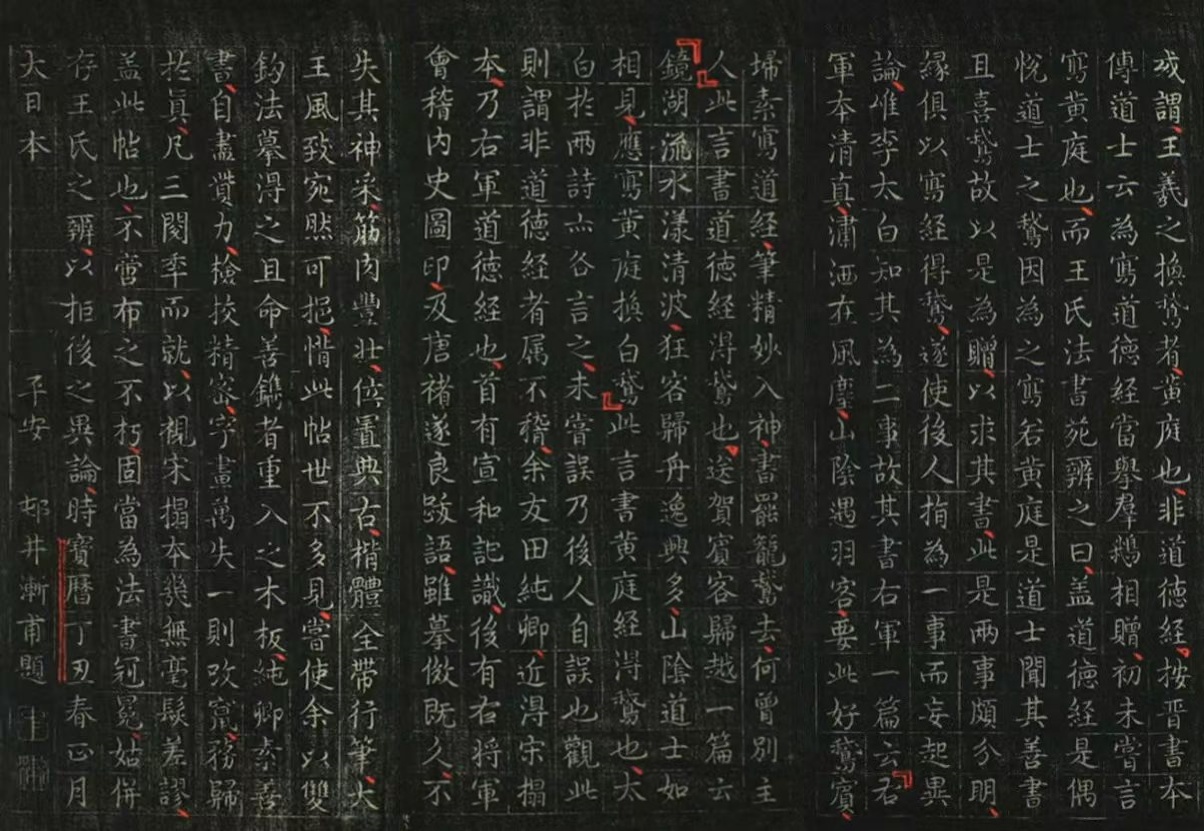 或謂王羲之換鵞者黃庭也非道德經按晉書本
傳道士云為寫道德經當擧羣鵝相贈初未嘗言
寫黃庭也而王氏法書苑辯之曰盖道德経是偶
悅道士之鵞因為之寫若黃庭是道士聞其善書
且喜鵞故以是為贈以求其書此是兩事頗分明
緣俱以寫経得鵞遂使後人指為一事而妄起異
論唯李太白知其為二事故其書右軍一篇云右
軍本清真瀟洒在風塵山陰遇羽客要此好鵞賓
埽素寫道経筆精妙入神書罷籠鵞去何曾別主
人此言書道德経淂鵞也送賀賓客歸越一篇云
鏡湖流水漾清波狂客歸舟逸興多山陰道士如
相見應寫黃庭換白鵞此言書黃庭経淂鵞也太
白扵兩詩亦各言之未嘗誤乃後人自誤也觀此
則謂非道德経者属不稽余友田純卿近淂宋搨
本乃右軍道德経也首有宣和記識後有右将軍
會稽内史圖印及唐褚遂良跋語雖摹倣既久不
失其神采筋肉豐壯位置典古楷體全帶行筆大
王風致宛然可挹惜此帖世不多見當使余以雙
鈎法摹得之且命善鐫者重入之木板純卿素善
書自盡費力撿挍精密字畫萬失一則改竄務歸
扵真凡三閱年而就以視宋搨本幾無毫髮差謬
盖此帖也不啻布之不朽固當為法書冠冕姑併
存王氏之辯以拒後之異論時寶曆丁丑春正月
大日本 平安 邨井漸甫題